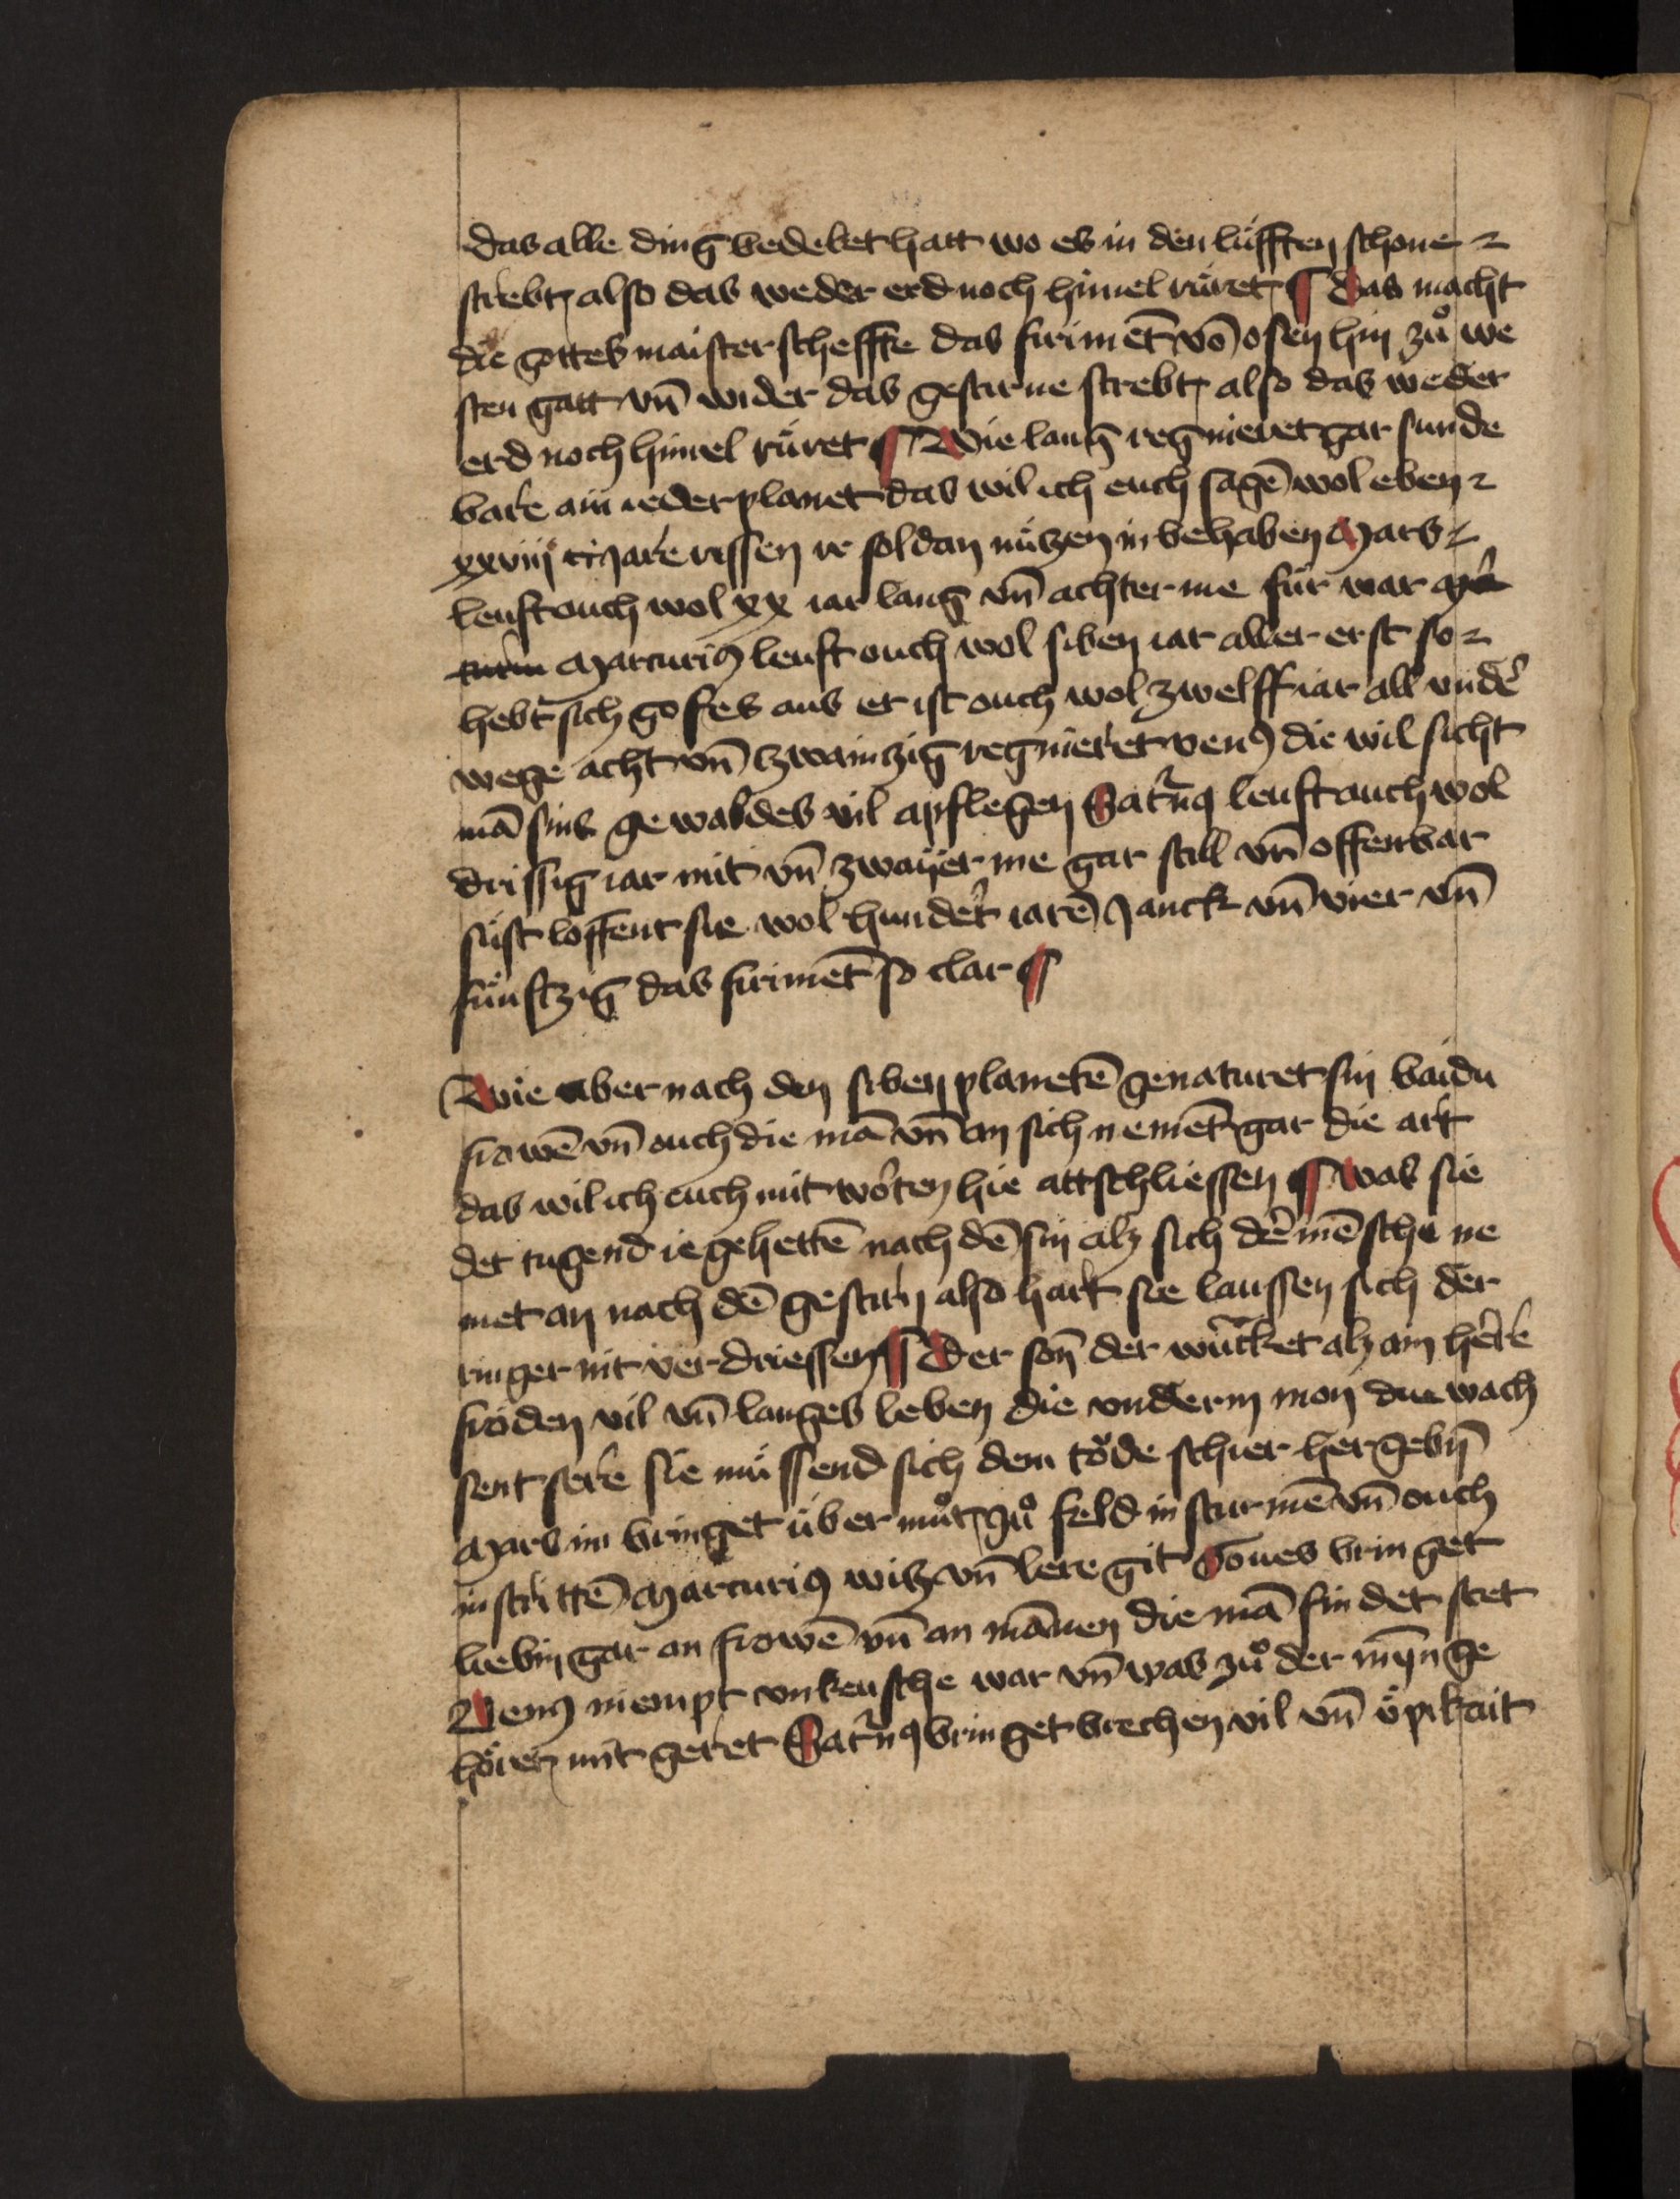 das alle ding bedeket hatt wo es in den lüfften schone
strebt also das weder erd noch himel rüret ¶ Das macht
die gottes maisterscheffte das firimēt vō osen hin zů we
sten gatt vn̄ wider das gestirne strebt also das weder
erd noch himel rüret ¶ Wie lang regnieret gar sunde
bare ain ieder planet das wil ich euch sagē wol eben
xxviij iare rissen ir sol dan nützen in behaben Mars
leuft ouch wol xx iar lang vn̄ achter me für war
Marcurius leuft ouch wol siben iar aller erst so
hebt sich Jofes aus er ist ouch wol zwelff iar all vnder
wege acht vn̄ tzwaintzig regnieret venus die wil sicht
mā sins gewaldes vil apflegen Saturnus leuft auch wol
drissig iar mit vn̄ zwayer me gar still vn̄ offenbar
süst loffent sie wol hundert iarē Janck vn̄ vier vn̄
fünftzig das firimēt so clar ¶
Wie aber nach den siben planetē genaturet sin baidu
frowē vn̄ ouch die mā vn̄ an sich nemēt gar die art
das wil ich euch mit worten hie attschliessen ¶ Was sie
der tugend ie gehettē nach dē sin alz sich der mēsche ne
met an nach dē gestirn also hart sie laussen sich der
ringer nit verdriessen ¶ Der son̄ der würcket alz am here
fröden vil vn̄ langes leben die vnderm mon die wach
sent sere sie müssend sich dem töde schier hergebn̄
Mars im bringet über můt zů feld in sturmē vn̄ ouch
in strittē Marcurius witz vn̄ lere git Joues bringet
liebin gar an frowē vn̄ an mānen die mā findet stet
Venus niempt vnkeusche war vn̄ was zů der myn̄ ge
höret mit geret Saturnus bringet brechen vil vn̄ üpikait